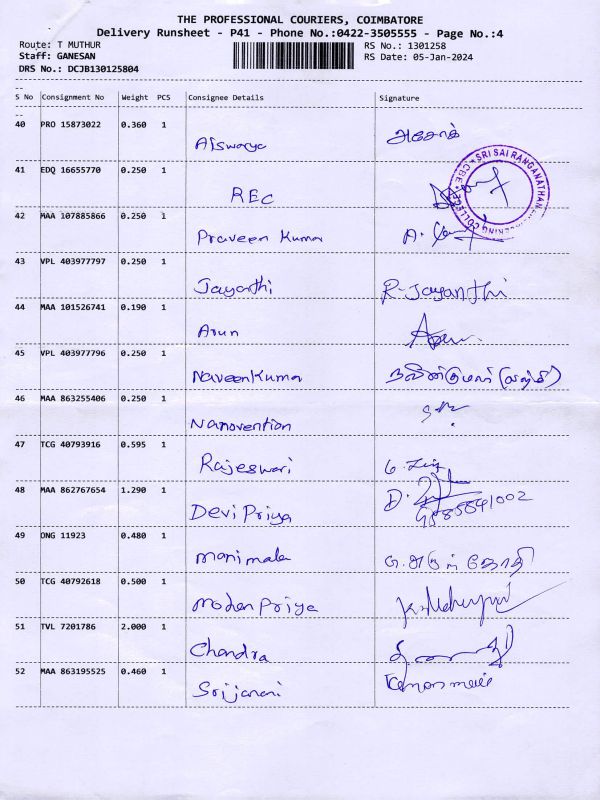 THE PROFESSIONAL COURIERS, COIMBATORE
Delivery Runsheet - P41 - Phone No.:0422-3505555 - Page No.:4
Route: T MUTHUR RS No.: 1301258
Staff: GANESAN RS Date: 05-Jan-2024
DRS No.: DCJB130125804
--
S No Consignment No Weight PCS Consignee Details Signature
--
40 PRO 15873022 0.360 1 Aiswarya அசோக்
41 EDQ 16655770 0.250 1 REC
SRI SAI RANGANATHAN ENGINEERING COLLEGE CBE
42 MAA 107885866 0.250 1 Praveen Kumar
43 VPL 403977797 0.250 1 Jayanthi R. Jayanthi
44 MAA 101526741 0.190 1 Arun Arun
45 VPL 403977796 0.250 1 NaveenKumar
46 MAA 863255406 0.250 1 Nanovention
47 TCG 40793916 0.595 1 Rajeswari
48 MAA 862767654 1.290 1 Devi Priya D.
49 ONG 11923 0.480 1 manimala
50 TCG 40792618 0.500 1 mohan Priya
51 TVL 7201786 2.000 1 Chandra
52 MAA 863195525 0.460 1 Srijanani